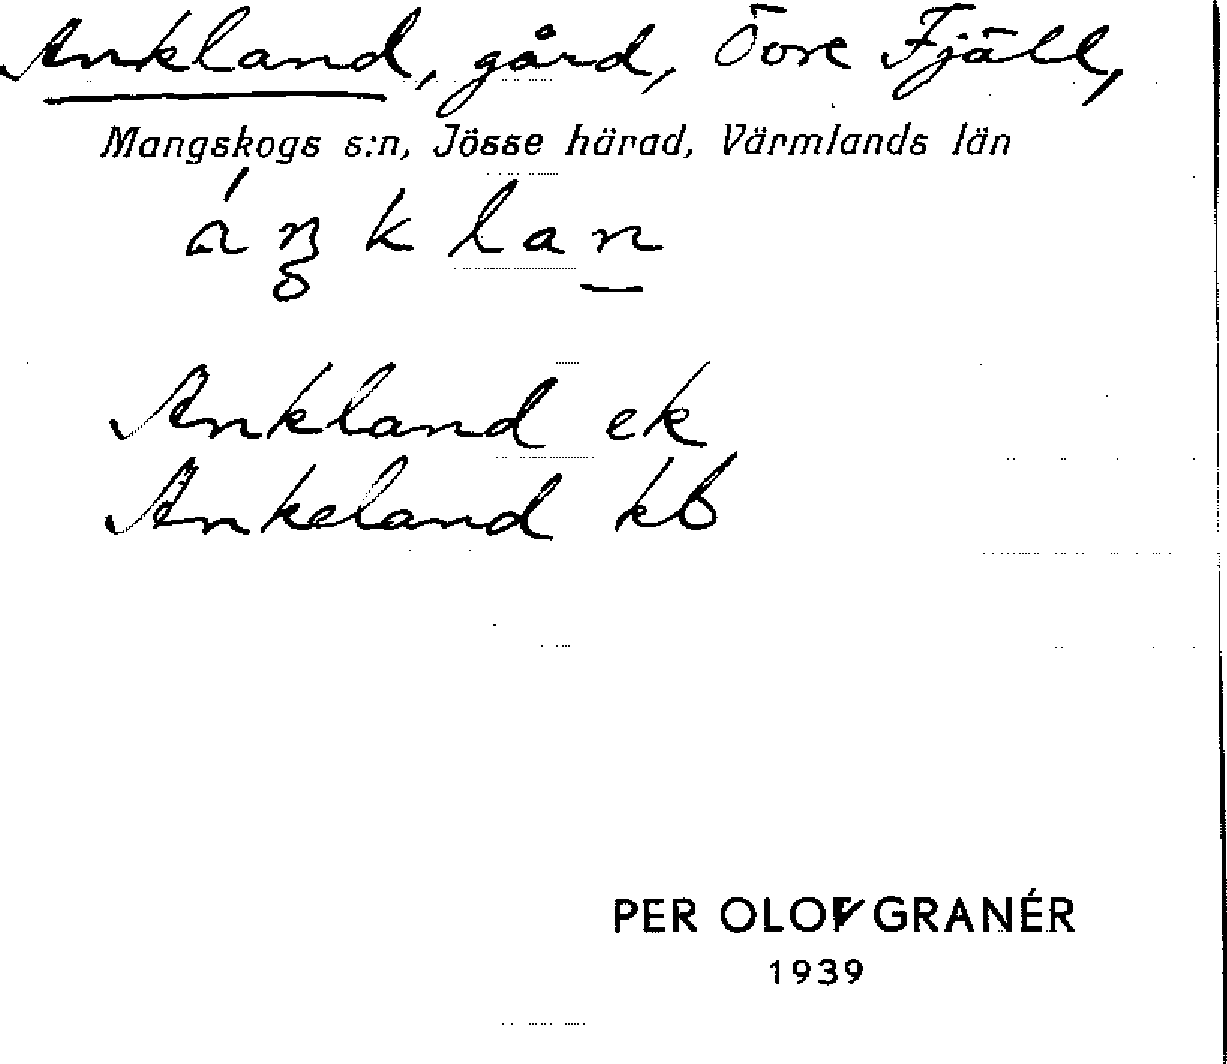 Ankland, gård, Övre Fjäll,
Mangskogs s:n, Jösse härad, Värmlands län
Ankland ek
Ankeland kb
PER OLOF GRANÉR
1939